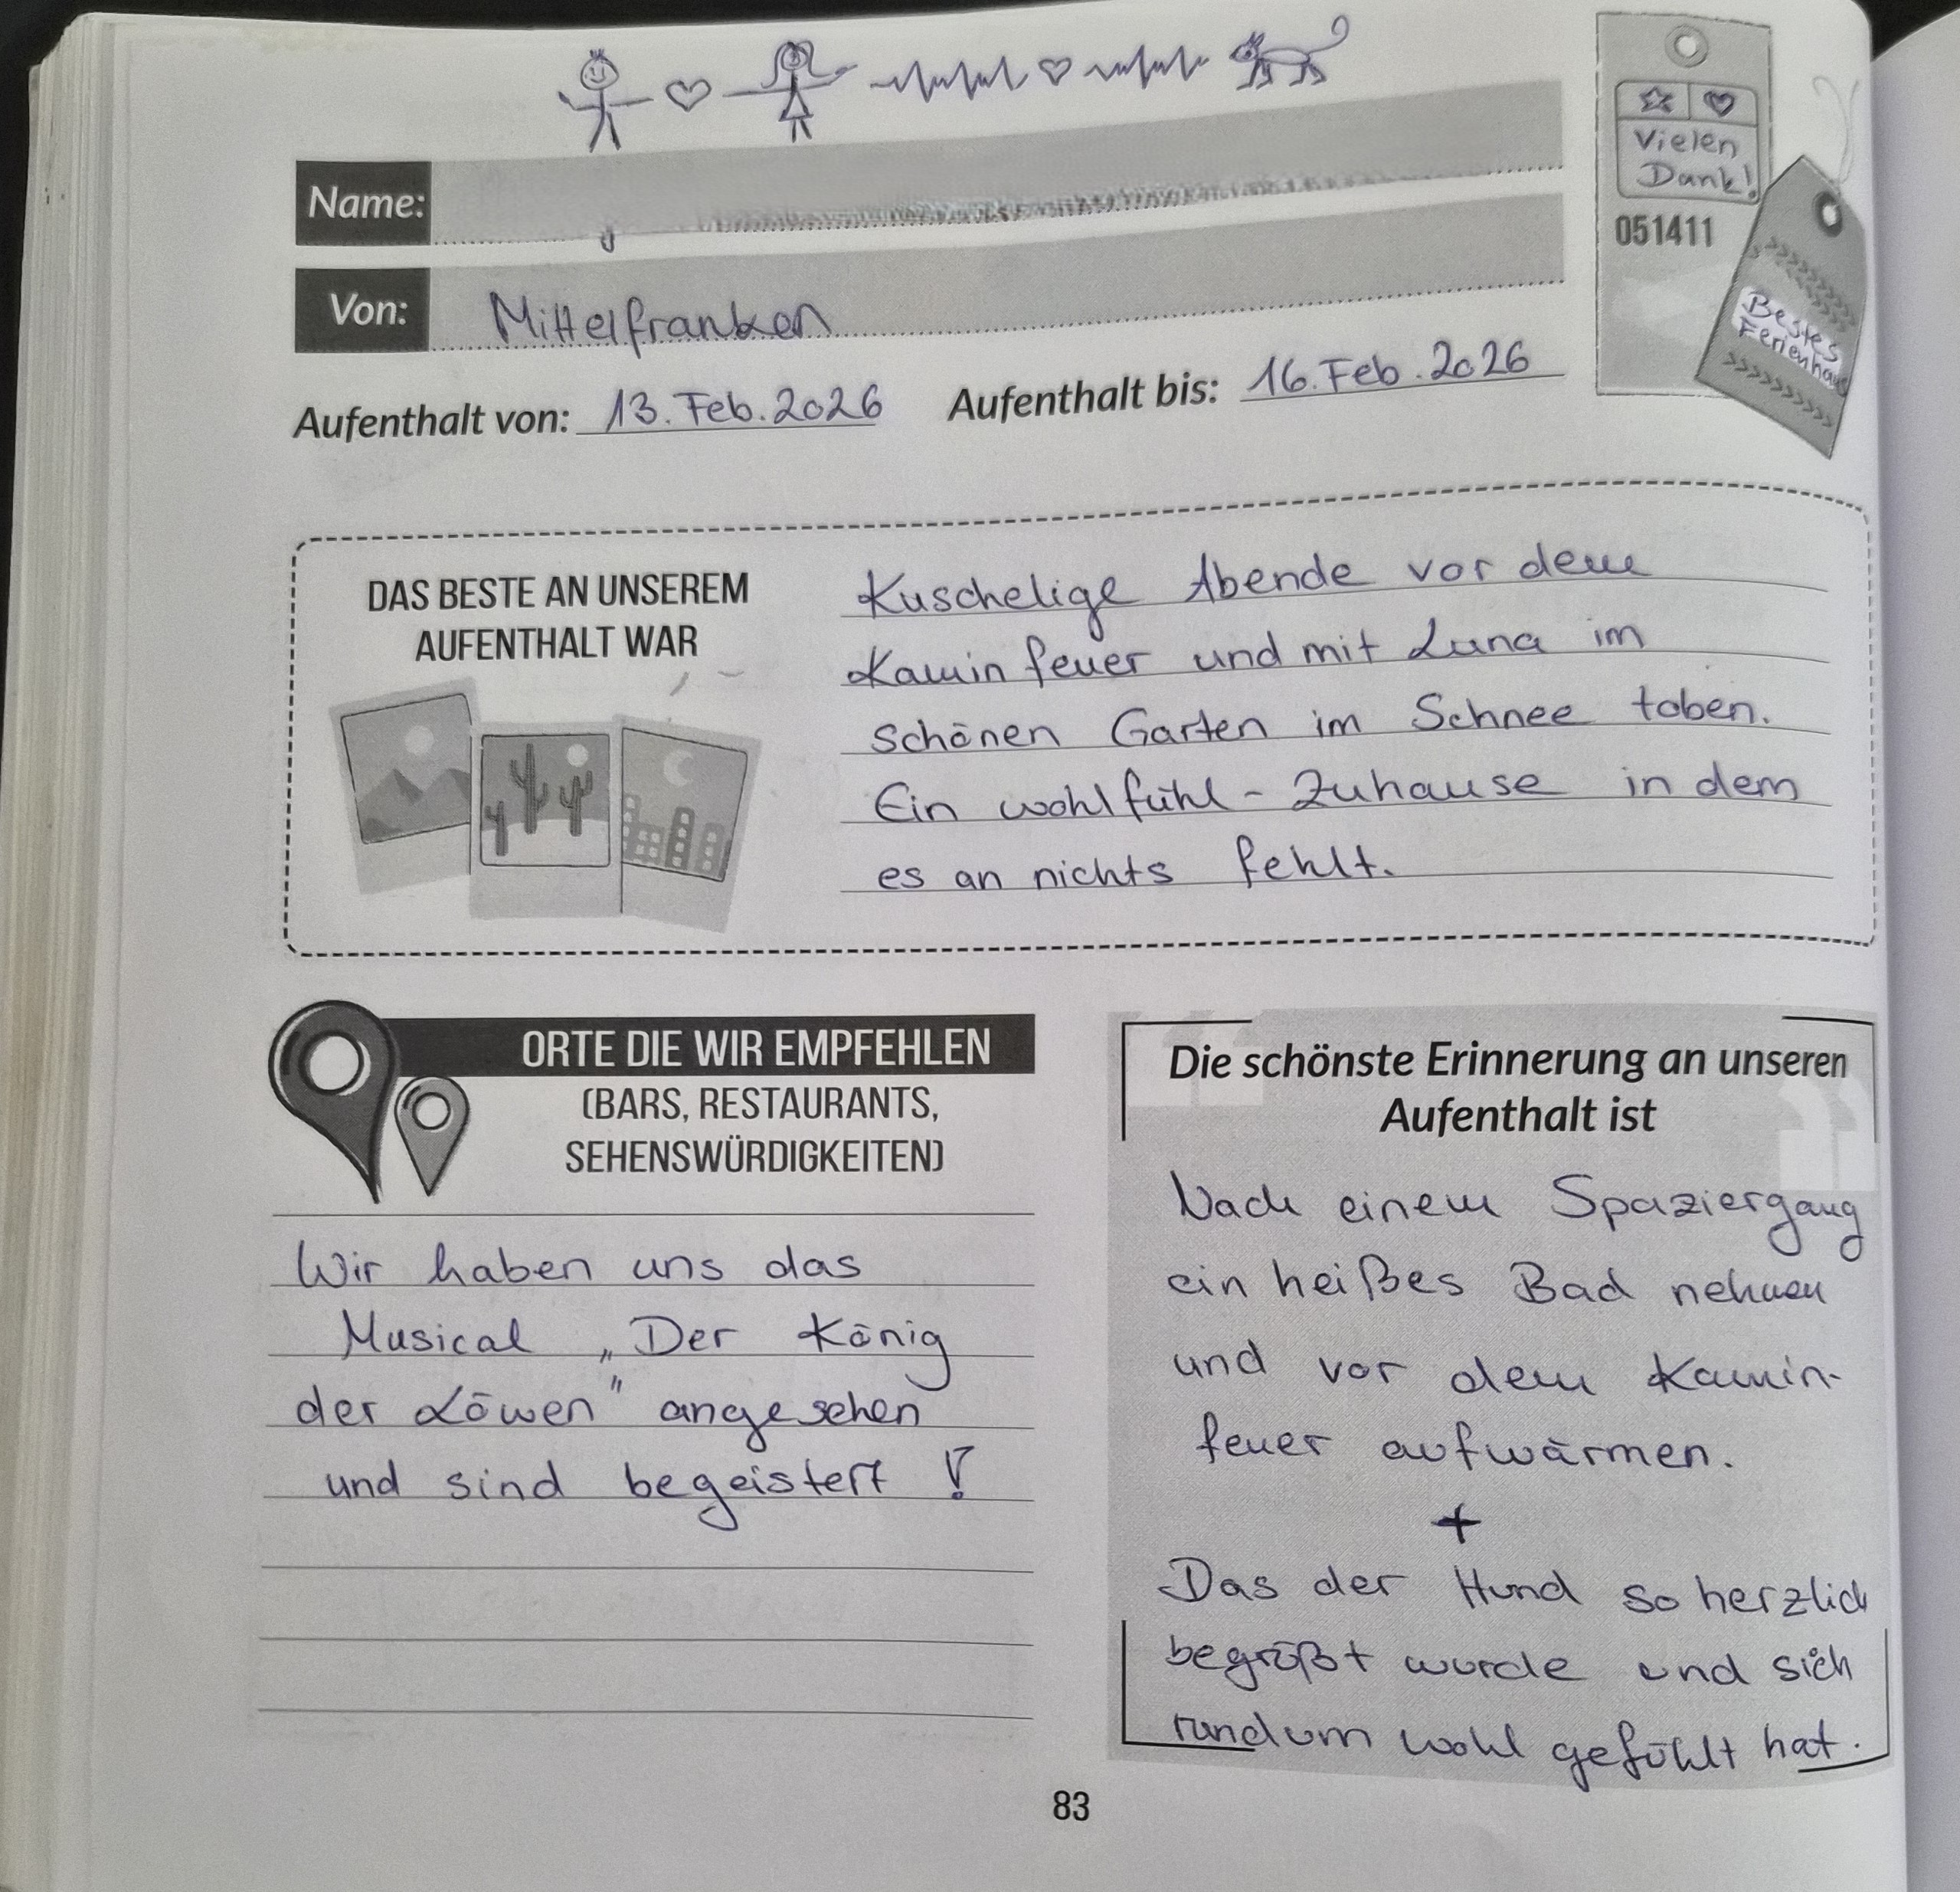 Vielen
Dank!
051411
Bestes
Ferienhaus
Name:
Von: Mittelfranken
Aufenthalt von: 13. Feb. 2026 Aufenthalt bis: 16. Feb. 2026
DAS BESTE AN UNSEREM
AUFENTHALT WAR
Kuschelige Abende vor dem
Kaminfeuer und mit Luna im
schönen Garten im Schnee toben.
Ein wohlfühl-Zuhause in dem
es an nichts fehlt.
ORTE DIE WIR EMPFEHLEN
(BARS, RESTAURANTS,
SEHENSWÜRDIGKEITEN)
Wir haben uns das
Musical „Der König
der Löwen" angesehen
und sind begeistert !
Die schönste Erinnerung an unseren
Aufenthalt ist
Nach einem Spaziergang
ein heißes Bad nehmen
und vor dem Kamin-
feuer aufwärmen.
+
Das der Hund so herzlich
begrüßt wurde und sich
rundum wohl gefühlt hat.
83